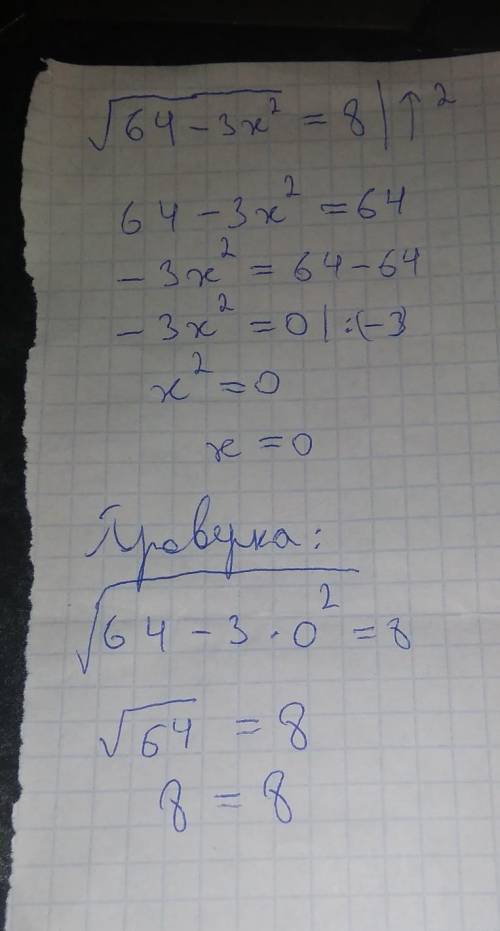 √64 - 3x² = 8 | ↑²
64 - 3x² = 64
- 3x² = 64 - 64
- 3x² = 0 | :(-3)
x² = 0
x = 0
Проверка:
√64 - 3 · 0² = 8
√64 = 8
8 = 8